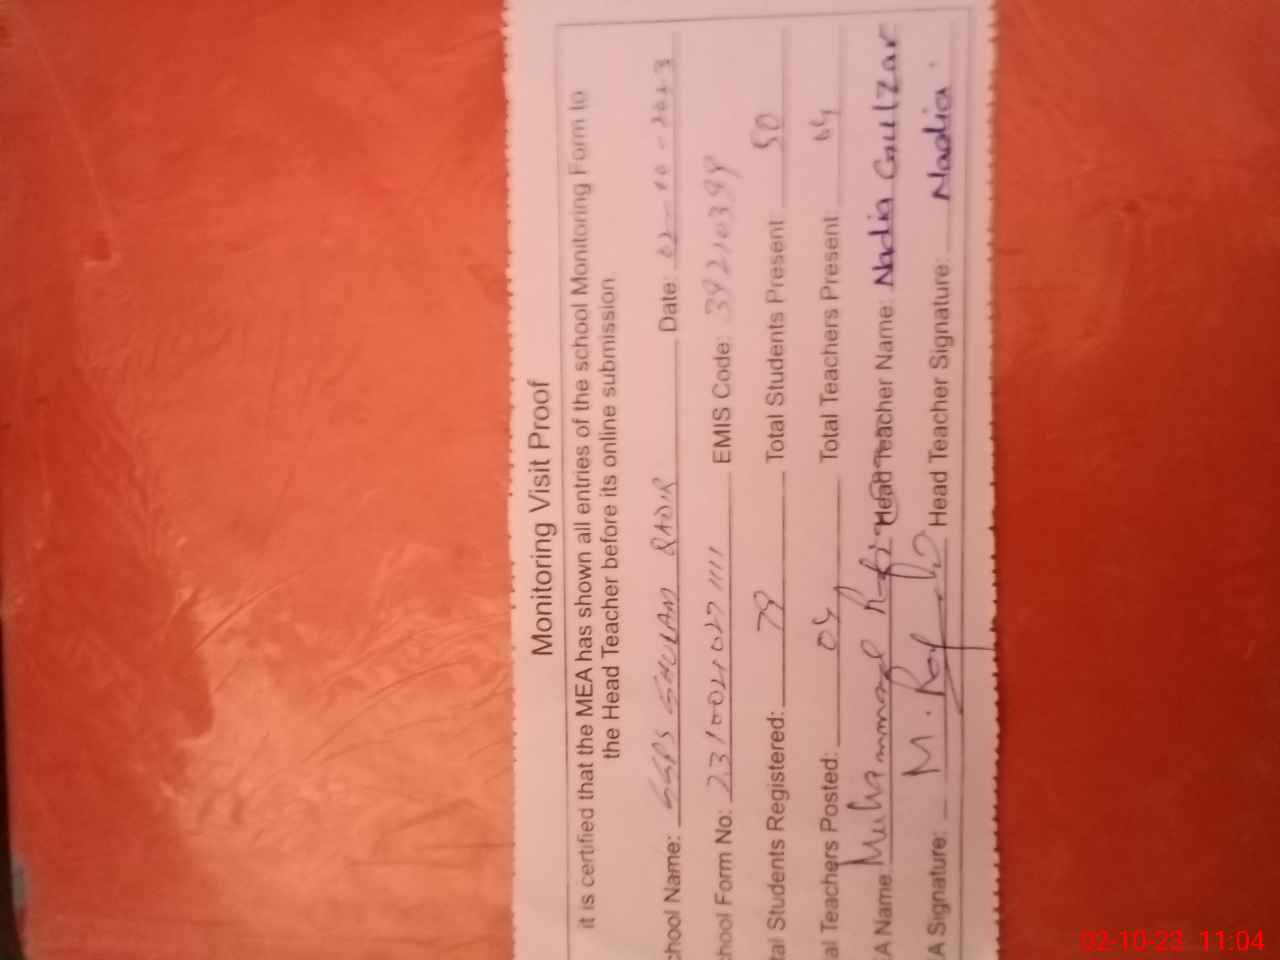 Monitoring Visit Proof
it is certified that the MEA has shown all entries of the school Monitoring Form to
the Head Teacher before its online submission
chool Name: GGPS GHULAM QADIR Date: 02-10-2023
chool Form No: EMIS Code:
tal Students Registered: 79 Total Students Present 50
al Teachers Posted: 04 Total Teachers Present: 04
A Name Muhammad Head Teacher Name: Nadia Gulzar
A Signature: M. Head Teacher Signature: Nadia
02-10-23 11:04